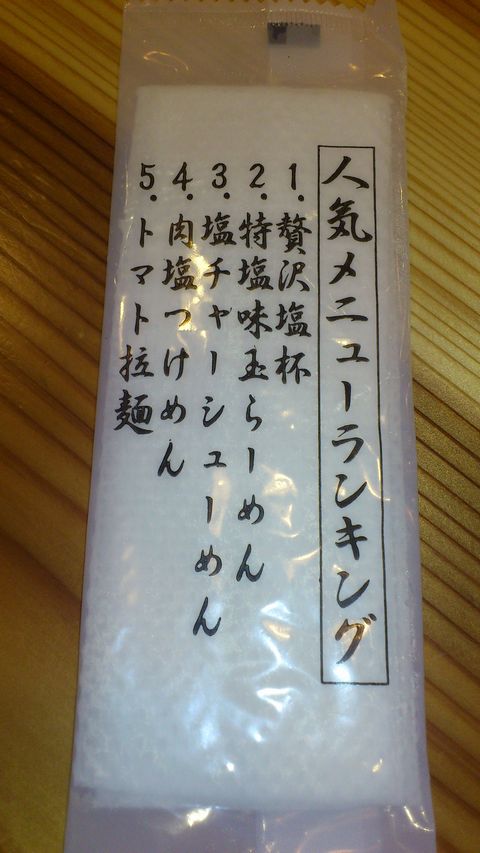 人気メニューランキング
1.贅沢塩杯
2.特塩味玉らーめん
3.塩チャーシューめん
4.肉塩つけめん
5.トマト拉麺